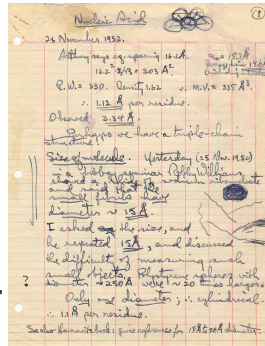 Nucleic Acid
①
26 November 1952.
Astbury says eq. spacing 16.2Å.
16.2² · 2/√3 = 303 Å².
R.W. = 330. Density 1.62 ∴ M.V. = 338 Å³.
∴ 1.12 Å per residue.
Observed 3.34 Å.
Perhaps we have a triple-chain
structure!
Size of molecule. Yesterday (25 Nov. 1952)
in a biology seminar Robley Williams
showed
and said that the
small fibers have
diameter ~ 15 Å
I asked the size, and
he repeated 15Å, and discussed
the difficulty of measuring such
small objects. Polystyrene spheres with
diameter ~250Å were ~20 times larger.
?
Only one diameter; ∴ cylindrical.
∴ 1.1Å per residue.
See also book: gives references for 15Å to 20Å diameter.